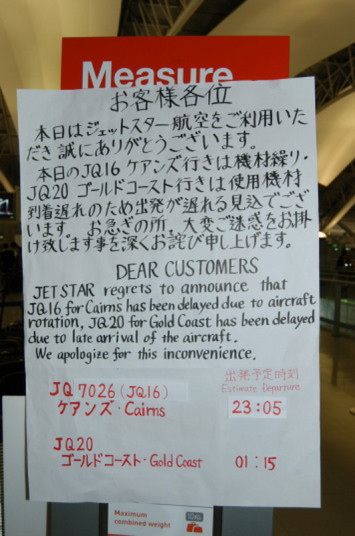 Measure
お客様各位
本日はジェットスター航空をご利用いた
だき誠にありがとうございます。
本日のJQ16 ケアンズ行きは機材繰り・
JQ20 ゴールドコースト行きは使用機材
到着遅れのため出発が遅れる見込でござ
います。 お急ぎの所、大変ご迷惑をお掛
け致します事を深くお詫び申し上げます。
DEAR CUSTOMERS
JETSTAR regrets to announce that
JQ16 for Cairns has been delayed due to aircraft
rotation, JQ20 for Gold Coast has been delayed
due to late arrival of the aircraft.
We apologize for this inconvenience.
出発予定時刻
Estimate Departure
JQ7026 (JQ16)
ケアンズ・Cairns 23:05
JQ20
ゴールドコースト・Gold Coast 01:15
Maximum
combined weight